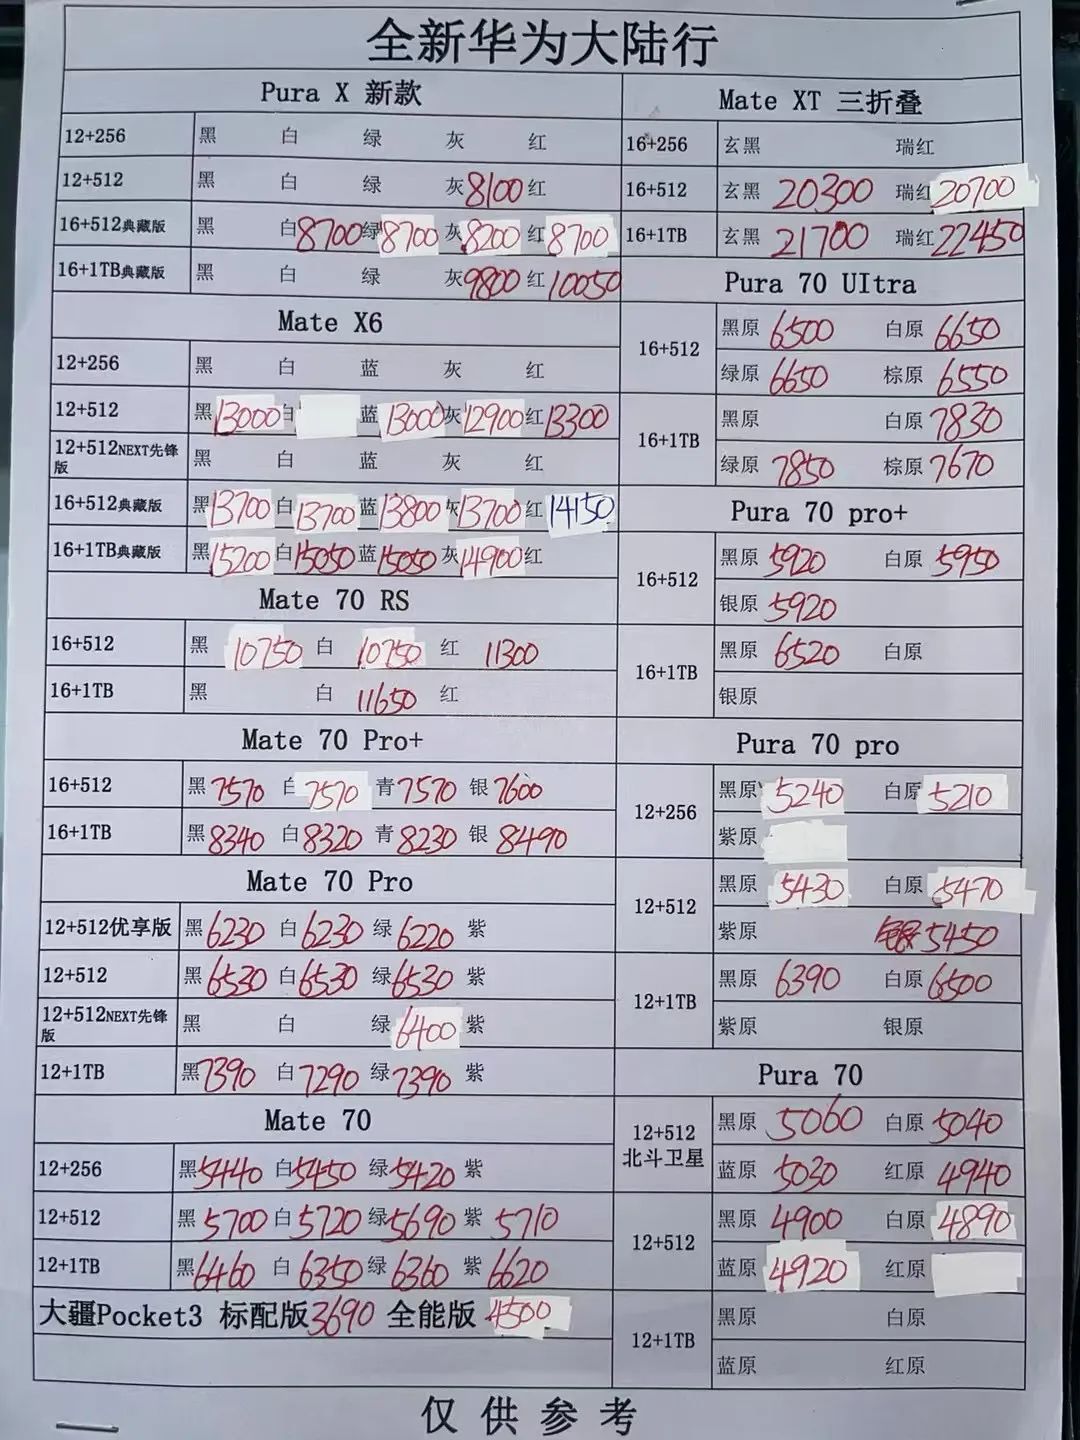 全新华为大陆行
Pura X 新款
12+256 黑 白 绿 灰 红
12+512 黑 白 绿 灰8100 红
16+512典藏版 黑 白8700 绿8700 灰8200 红8700
16+1TB典藏版 黑 白 绿 灰9800 红10050
Mate X6
12+256 黑 白 蓝 灰 红
12+512 黑13000 白 蓝13000 灰12900 红13300
12+512NEXT先锋版 黑 白 蓝 灰 红
16+512典藏版 黑13700 白13700 蓝13800 灰13700 红14150
16+1TB典藏版 黑15200 白15050 蓝15050 灰14900 红
Mate 70 RS
16+512 黑 10750 白 10750 红 11300
16+1TB 黑 白 11650 红
Mate 70 Pro+
16+512 黑7570 白7570 青7570 银7600
16+1TB 黑8340 白8320 青8230 银8490
Mate 70 Pro
12+512优享版 黑6230 白6230 绿6220 紫
12+512 黑6530 白6530 绿6530 紫
12+512NEXT先锋版 黑 白 绿6400 紫
12+1TB 黑7390 白7290 绿7390 紫
Mate 70
12+256 黑5440 白5450 绿5420 紫
12+512 黑5700 白5720 绿5690 紫5710
12+1TB 黑6460 白6350 绿6360 紫6620
大疆Pocket3 标配版3690 全能版4500
Mate XT 三折叠
16+256 玄黑 瑞红
16+512 玄黑 20300 瑞红20700
16+1TB 玄黑 21700 瑞红22450
Pura 70 UItra
16+512 黑原 6500 白原 6650
绿原 6650 棕原 6550
16+1TB 黑原 白原 7830
绿原 7850 棕原 7670
Pura 70 pro+
16+512 黑原 5920 白原 5950
银原 5920
16+1TB 黑原 6520 白原
银原
Pura 70 pro
12+256 黑原 5240 白原 5210
紫原
12+512 黑原 5430 白原 5470
紫原 5450
12+1TB 黑原 6390 白原 6500
紫原 银原
Pura 70
12+512北斗卫星 黑原 5060 白原 5040
蓝原 5030 红原 4940
12+512 黑原 4900 白原 4890
蓝原 4920 红原
12+1TB 黑原 白原
蓝原 红原
仅供参考